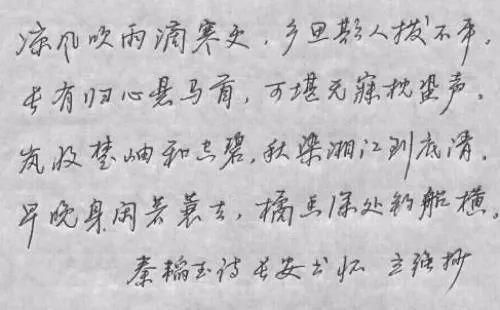 凉风吹雨滴寒更，乡思欺人拨不平。
长有归心悬马首，可堪无寐枕蛩声。
岚收楚岫和空碧，秋染湘江到底清。
早晚身闲著蓑去，橘香深处钓船横。
秦韬玉诗长安书怀 立强抄